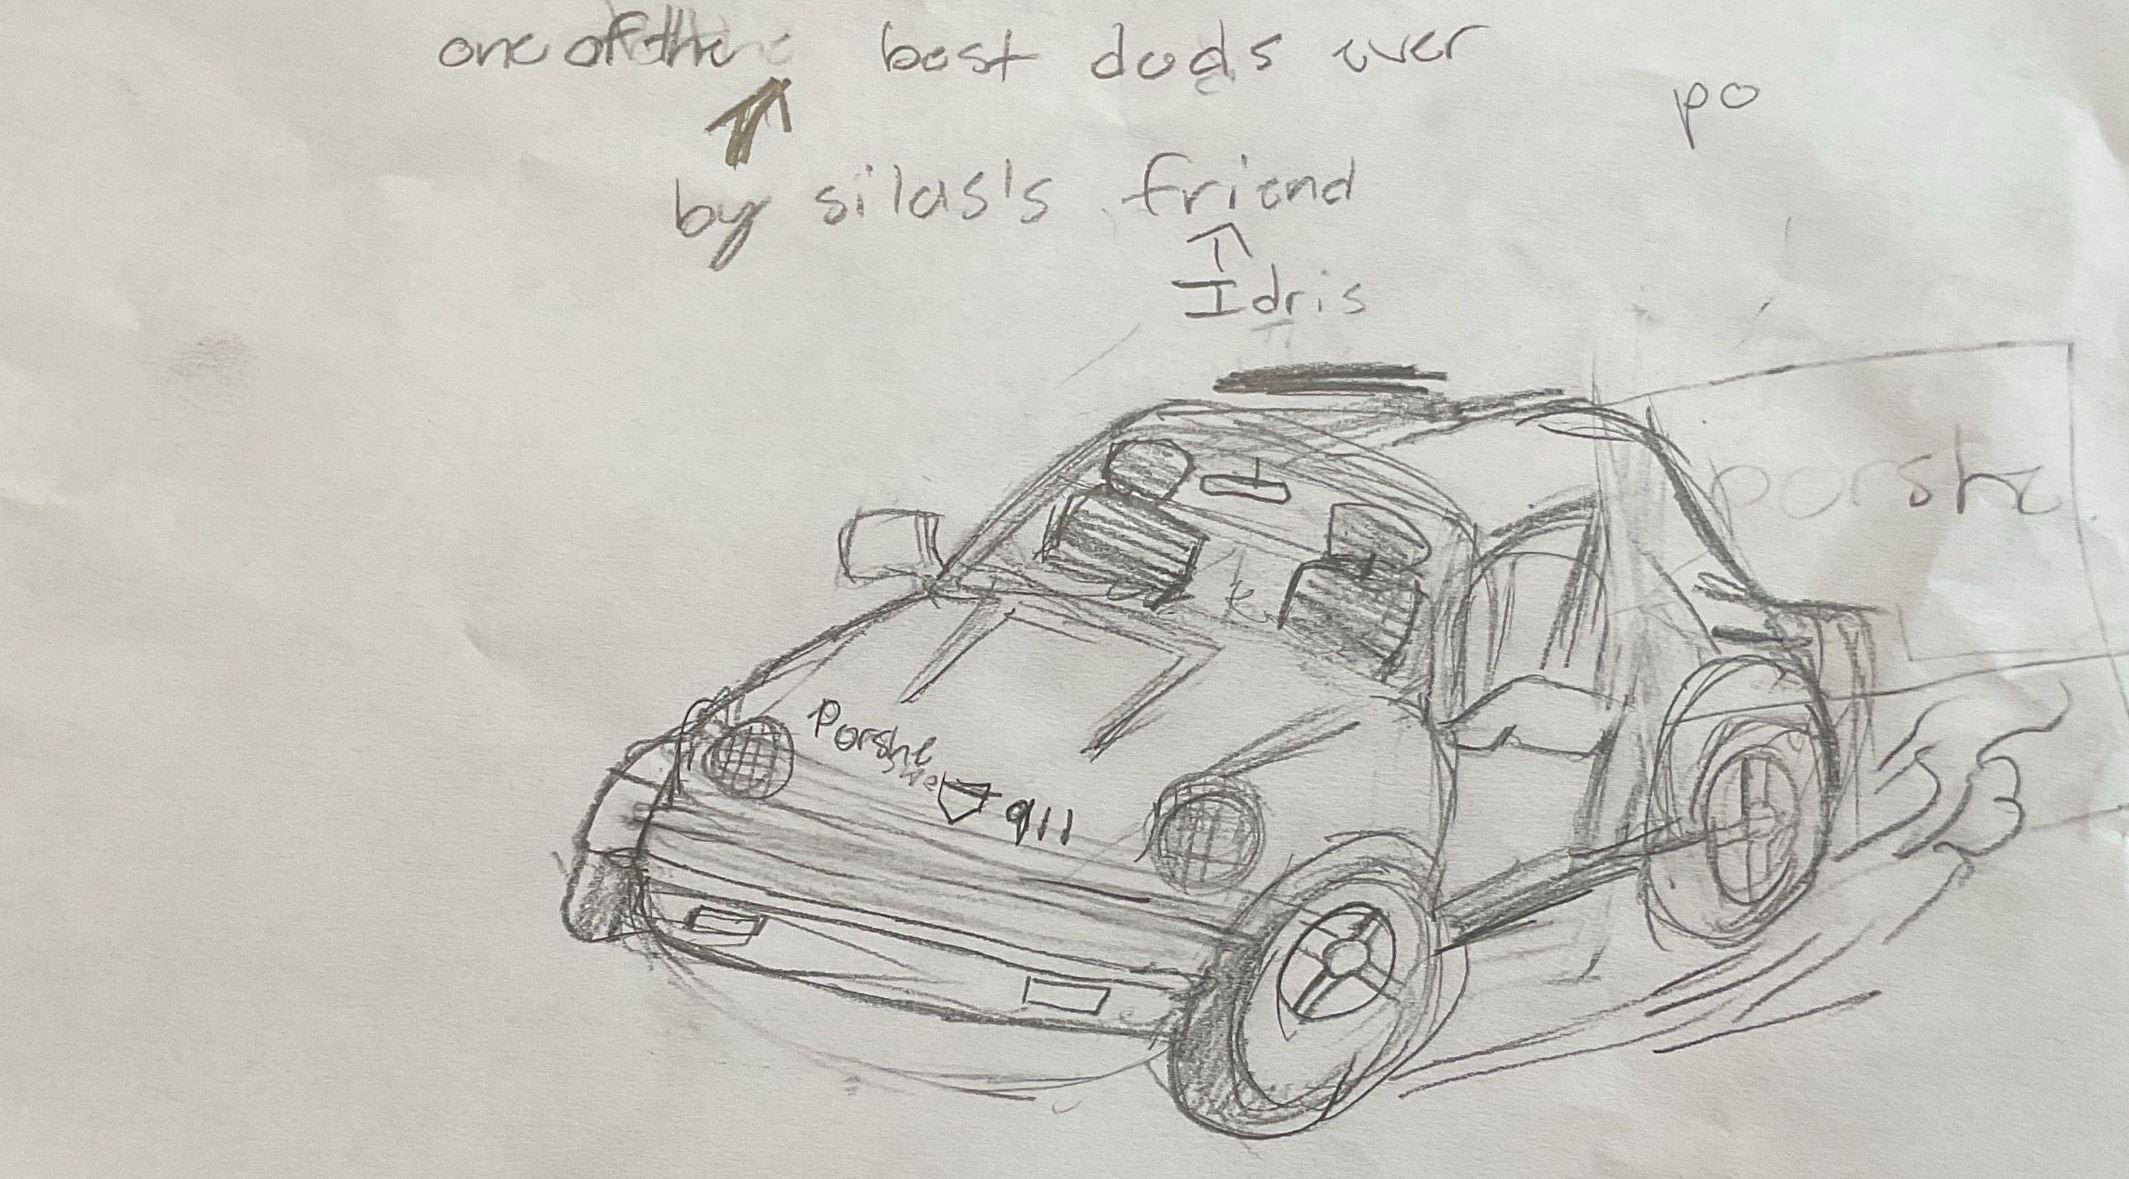 one of the best dads ever
po
by silas's friend
Idris
porshe
Porshe
911